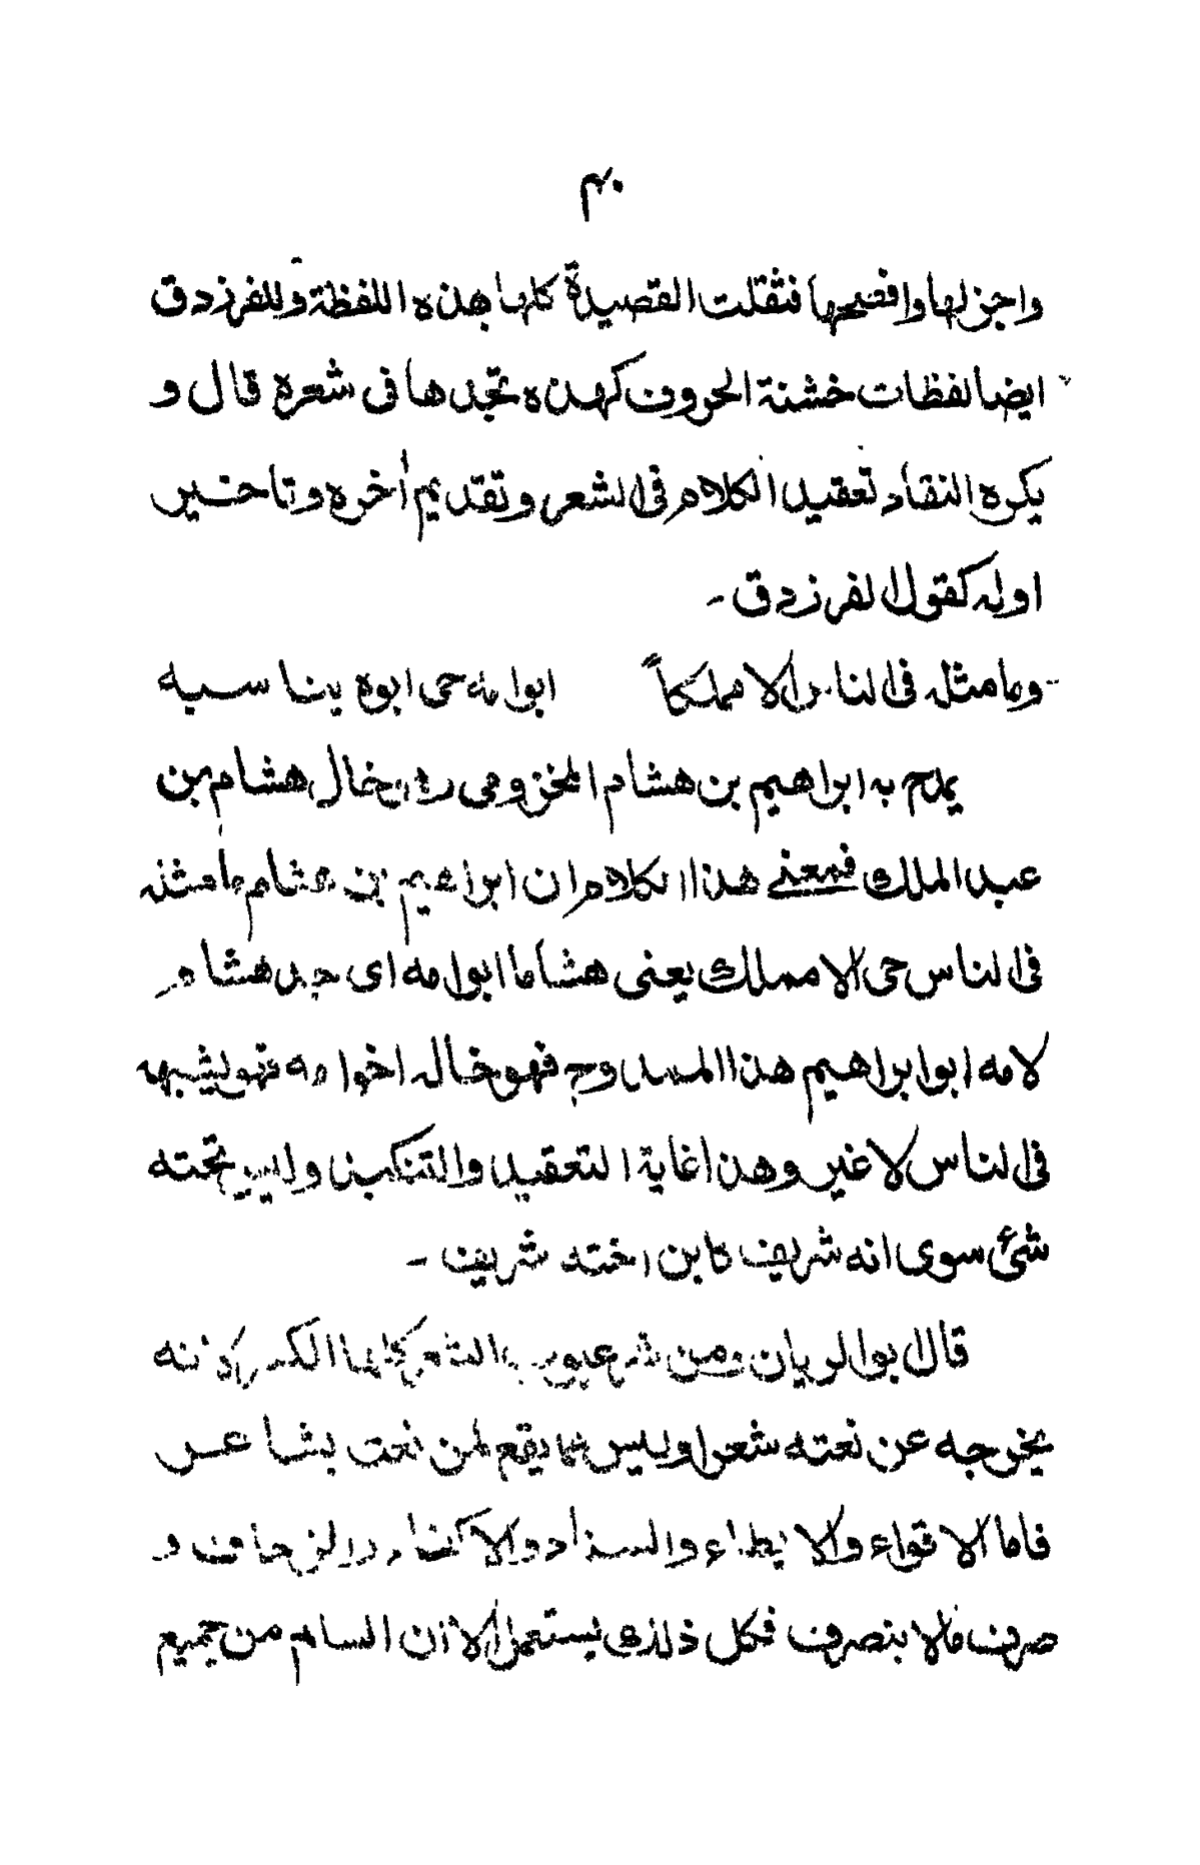 ۴۰
واجزلها وافصحها فثقلت القصيدة كلها بهذه اللفظة وللفرزدق
ايضا لفظات خشنة الحروف كهذه تجدها فى شعره قال و
يكره النقاد تعقيد الكلام فى الشعر وتقديم أخره وتاخير
اوله كقول الفرزدق ـ
وما مثله فى الناس الا مملكاً ابوامه حى ابوه يناسبه
يمدح به ابراهيم بن هشام المخزومى خال هشام بن
عبد الملك فمعنے هذا الكلام ان ابراهيم بن هشام ما مثله
فى الناس حى الا مملك يعنى هشاما ابوامه اى جد هشام
لامه ابوابراهيم هذا الممدوح فهو خاله اخوامه فهو يشبهه
فى الناس لا غير وهذا غاية التعقيد والتنكيد وليس تحته
شئ سوى انه شريف كابن اخته شريف ـ
قال ابوالريان ومن شر عيوب الشعر كلها الكسر لانه
يخرجه عن نعته شعرا وليس مما يقع لمن نعت بشاعر
فاما الاقواء والايطاء والسناد والاكفاء والزحاف و
صرف مالا ينصرف فكل ذلك يستعمل الا ان السالم من جميع